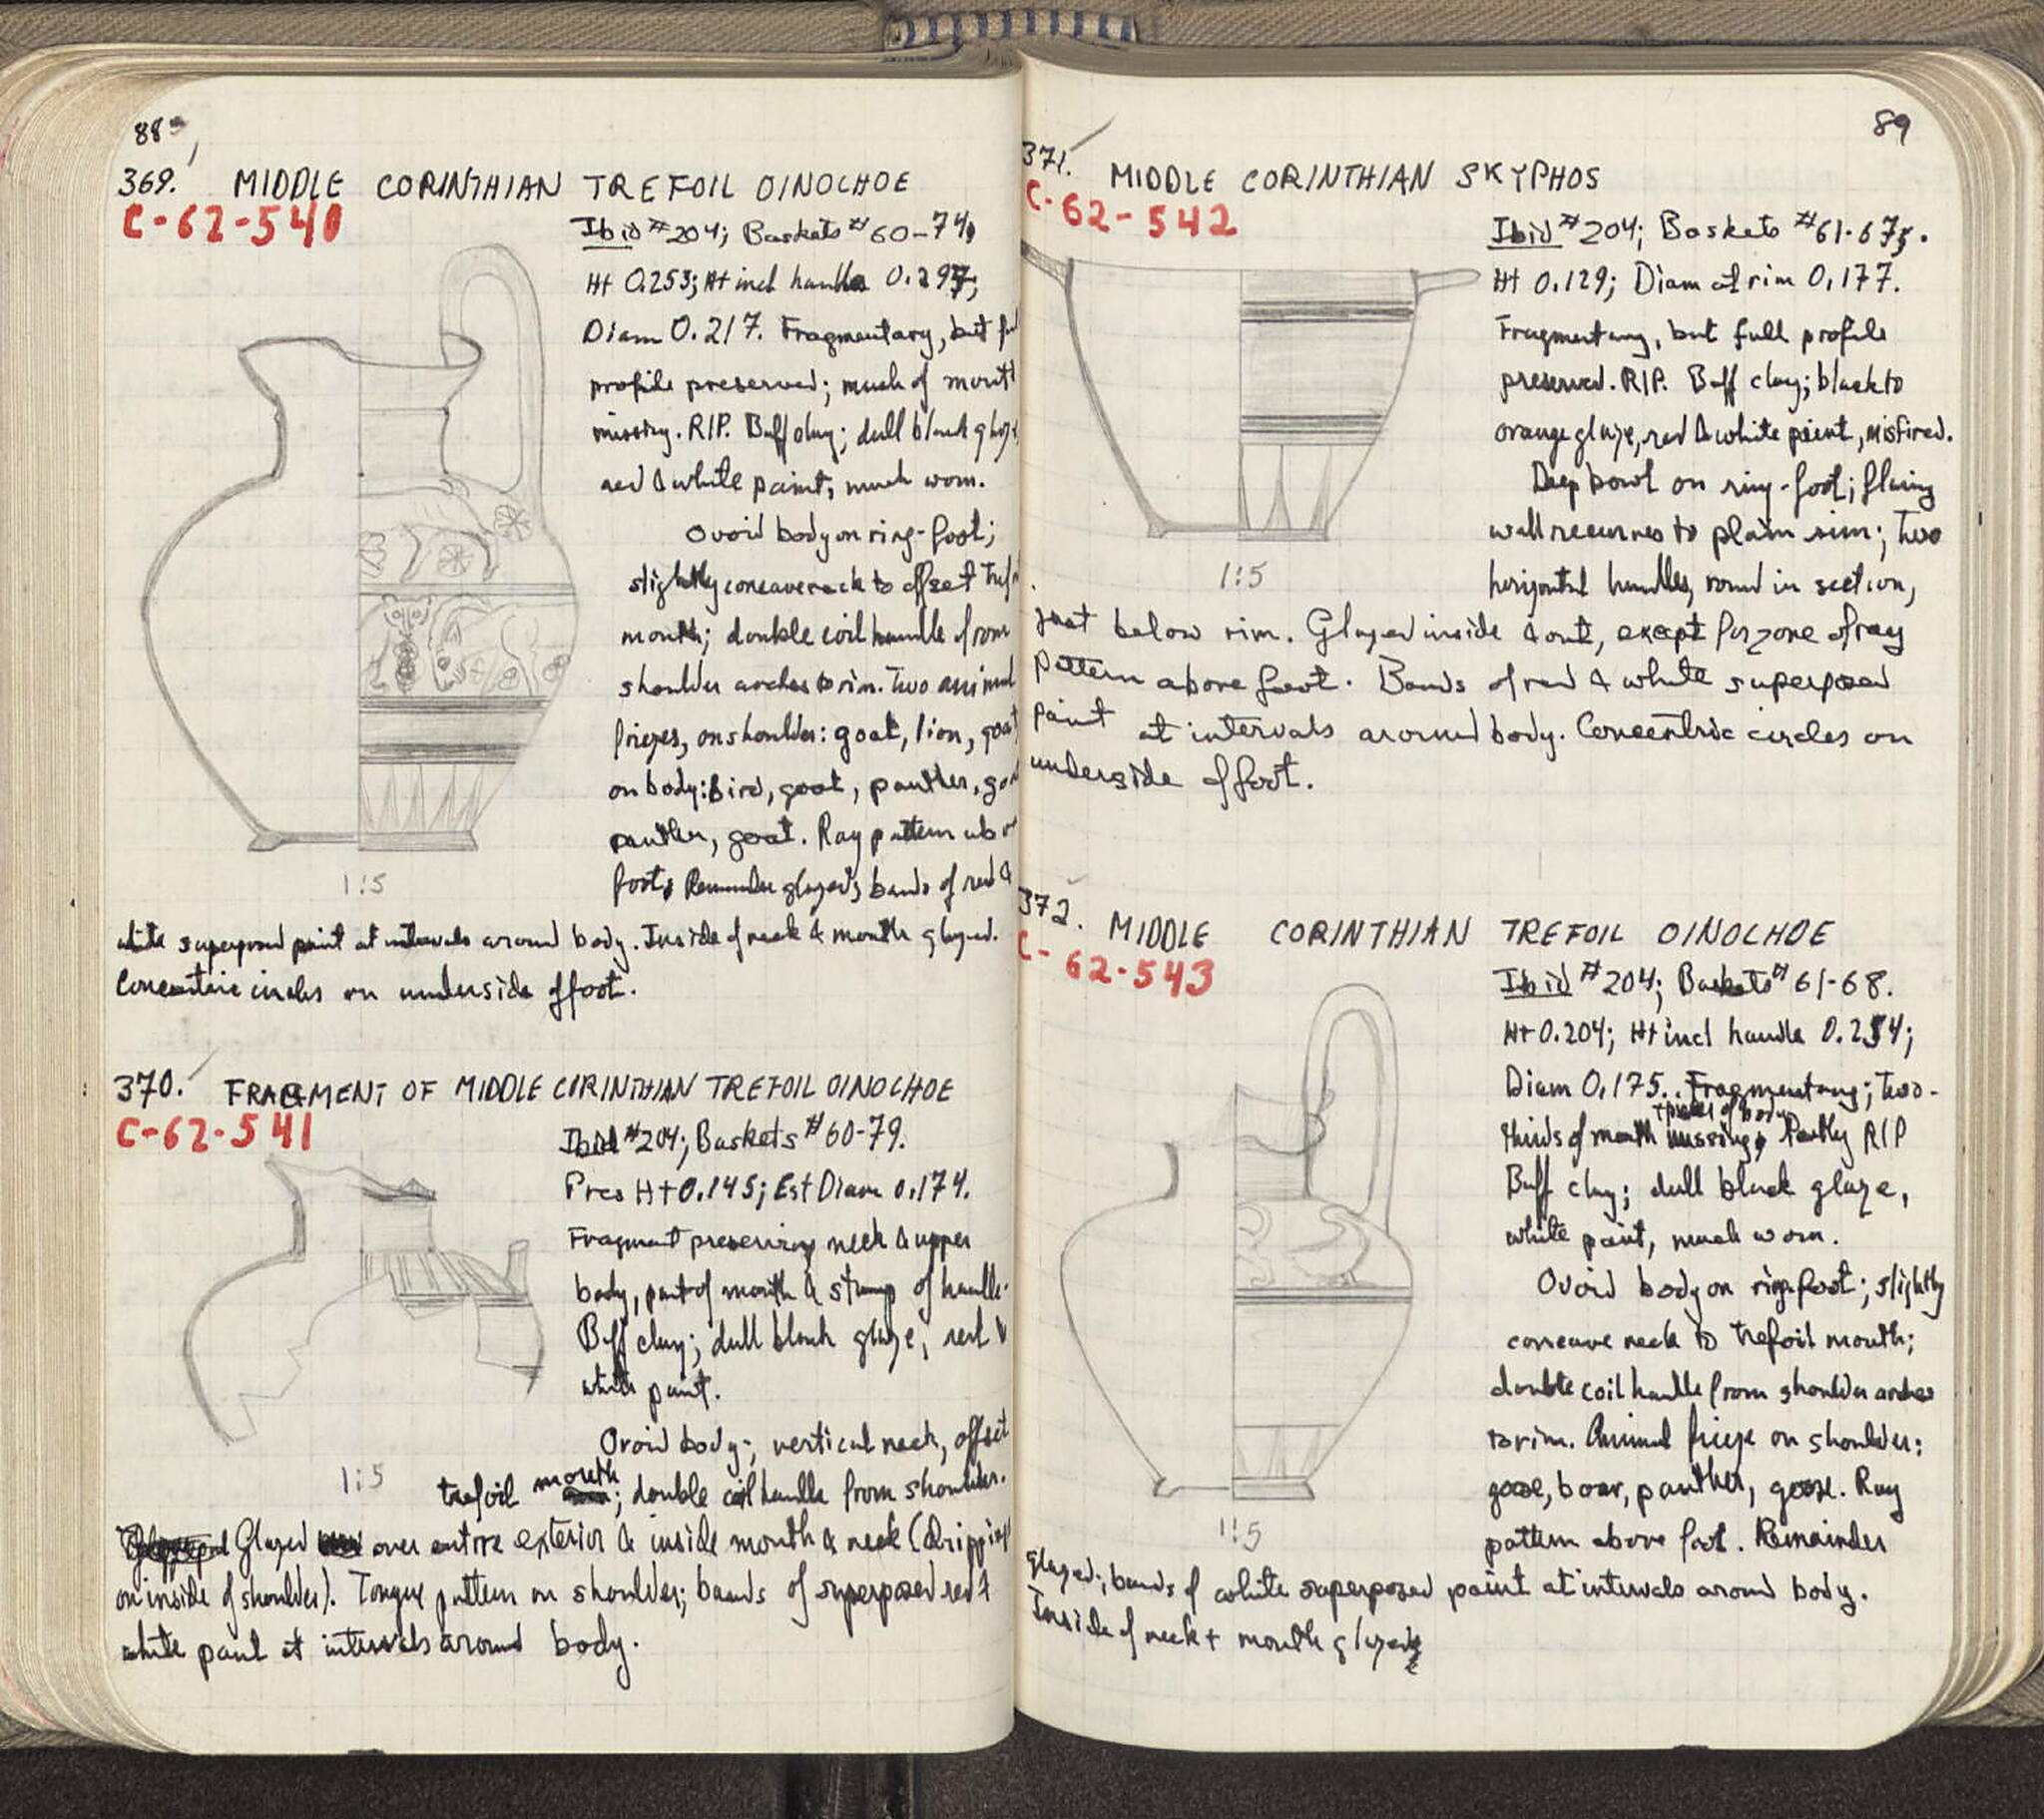 88
369. MIDDLE CORINTHIAN TREFOIL OINOCHOE
C-62-540
Ibid #204; Baskets #60-74,
Ht 0.253; Ht incl handle 0.297;
Diam 0.217. Fragmentary, but
profile preserved; much of mouth
missing. RIP. Buff clay; dull black
red & white paint, much worn.
Ovoid body on ring-foot;
slightly concave neck to offset
mouth; double coil handle from
shoulder arches to rim. Two animal
friezes, on shoulder: goat, lion, goat
on body: Bird, goat, panther,
panther, goat. Ray pattern
foot. Remainder glazed; bands of red &
white superposed paint at intervals around body. Inside of neck & mouth glazed.
Concentric circles on underside of foot.
1:5
370. FRAGMENT OF MIDDLE CORINTHIAN TREFOIL OINOCHOE
C-62-541
Ibid #204; Baskets #60-79.
Pres Ht 0.145; Est Diam 0.174.
Fragment preserving neck & upper
body, part of mouth & stump of handle.
Buff clay; dull black glaze, red &
white paint.
Ovoid body; vertical neck, offset
1:5
trefoil mouth; double coil handle from shoulder.
Glazed over entire exterior & inside mouth & neck (dripping
on inside of shoulder). Tongue pattern on shoulder; bands of superposed red &
white paint at intervals around body.
89
371. MIDDLE CORINTHIAN SKYPHOS
C-62-542
Ibid #204; Baskets #61-67,
Ht 0.129; Diam at rim 0.177.
Fragmentary, but full profile
preserved. RIP. Buff clay; black to
orange glaze, red & white paint, misfired.
Deep bowl on ring-foot; flaring
wall recurves to plain rim; two
horizontal handles, round in section,
1:5
just below rim. Glazed inside & out, except for zone of ray
pattern above foot. Bands of red & white superposed
paint at intervals around body. Concentric circles on
underside of foot.
372. MIDDLE CORINTHIAN TREFOIL OINOCHOE
C-62-543
Ibid #204; Baskets #61-68.
Ht 0.204; Ht incl handle 0.254;
Diam 0.175. Fragmentary; two-
thirds of mouth + pieces of body missing. Partly RIP
Buff clay; dull black glaze,
white paint, much worn.
Ovoid body on ring-foot; slightly
concave neck to trefoil mouth;
double coil handle from shoulder arches
to rim. Animal frieze on shoulder:
goose, boar, panther, goose. Ray
pattern above foot. Remainder
1:5
glazed; bands of white superposed paint at intervals around body.
Inside of neck + mouth glazed